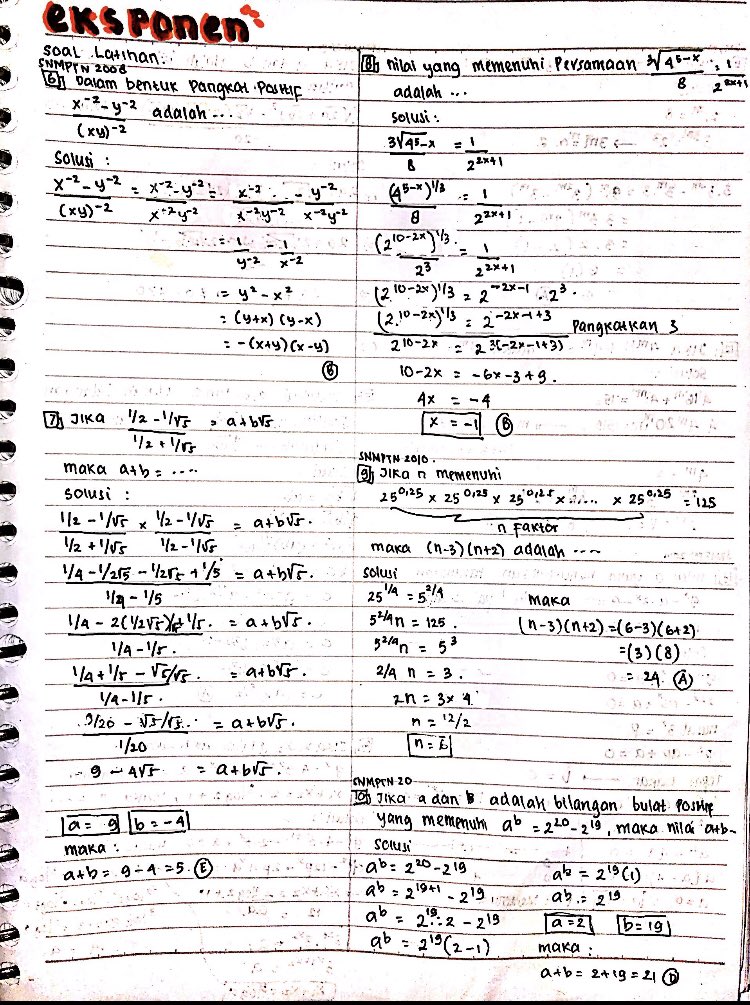 eksponen
Soal Latihan:
SNMPTN 2008
6) Dalam bentuk Pangkat Positif
x⁻² - y⁻² / (xy)⁻² adalah ...
Solusi :
x⁻² - y⁻² / (xy)⁻² = x⁻² - y⁻² / x⁻²y⁻² = x⁻² / x⁻²y⁻² - y⁻² / x⁻²y⁻²
= 1/y⁻² - 1/x⁻²
= y² - x²
= (y+x) (y-x)
= -(x+y)(x-y)
B
7) Jika 1/2 - 1/√5 / 1/2 + 1/√5 = a+b√5
maka a+b = ....
solusi :
1/2 - 1/√5 / 1/2 + 1/√5 × 1/2 - 1/√5 / 1/2 - 1/√5 = a+b√5.
1/4 - 1/2√5 - 1/2√5 + 1/5 / 1/4 - 1/5 = a+b√5.
1/4 - 2(1/2√5) + 1/5 / 1/4 - 1/5. = a+b√5.
1/4 + 1/5 - √5/√5. / 1/4 - 1/5. = a+b√5.
9/20 - √5/√5. / 1/20 = a+b√5.
= 9 - 4√5 = a+b√5.
a = 9 b = -4
maka :
a+b = 9 - 4 = 5. E
8) Nilai yang memenuhi Persamaan ³√4⁵⁻ˣ / 8 = 1 / 2²ˣ⁺¹
adalah ...
solusi :
³√4⁵⁻ˣ / 8 = 1 / 2²ˣ⁺¹
(4⁵⁻ˣ)¹/³ / 8 = 1 / 2²ˣ⁺¹
(2¹⁰⁻²ˣ)¹/³ / 2³ = 1 / 2²ˣ⁺¹
(2¹⁰⁻²ˣ)¹/³ = 2⁻²ˣ⁻¹ . 2³.
(2.¹⁰⁻²ˣ)¹/³ = 2⁻²ˣ⁻¹⁺³ Pangkatkan 3
2¹⁰⁻²ˣ = 2³⁽⁻²ˣ⁻¹⁺³⁾
10-2x = -6x-3+9.
4x = -4
x = -1 B
SNMPTN 2010.
9) Jika n memenuhi
25⁰,²⁵ × 25⁰,²⁵ × 25⁰,²⁵ × ..... × 25⁰,²⁵ = 125
n faktor
maka (n-3)(n+2) adalah ....
solusi
25¹/⁴ = 5²/⁴
5²/⁴n = 125.
5²/⁴n = 5³
2/4 n = 3.
2n = 3 × 4
n = 12/2
n = 6
maka
(n-3)(n+2) = (6-3)(6+2)
= (3)(8)
= 24. A
SNMPTN 20
10) Jika a dan B adalah bilangan bulat Positif
yang memenuhi aᵇ = 2²⁰ - 2¹⁹, maka nilai a+b=
solusi
aᵇ = 2²⁰ - 2¹⁹
aᵇ = 2¹⁹⁺¹ - 2¹⁹.
aᵇ = 2¹⁹ . 2 - 2¹⁹
aᵇ = 2¹⁹(2-1)
aᵇ = 2¹⁹(1)
aᵇ = 2¹⁹
a=2 b=19
maka :
a+b = 2+19 = 21 D